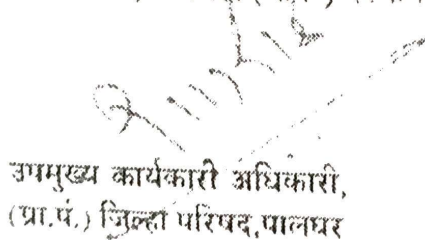 उपमुख्य कार्यकारी अधिकारी,
(प्रा.पं.) जिल्हा परिषद,पालघर